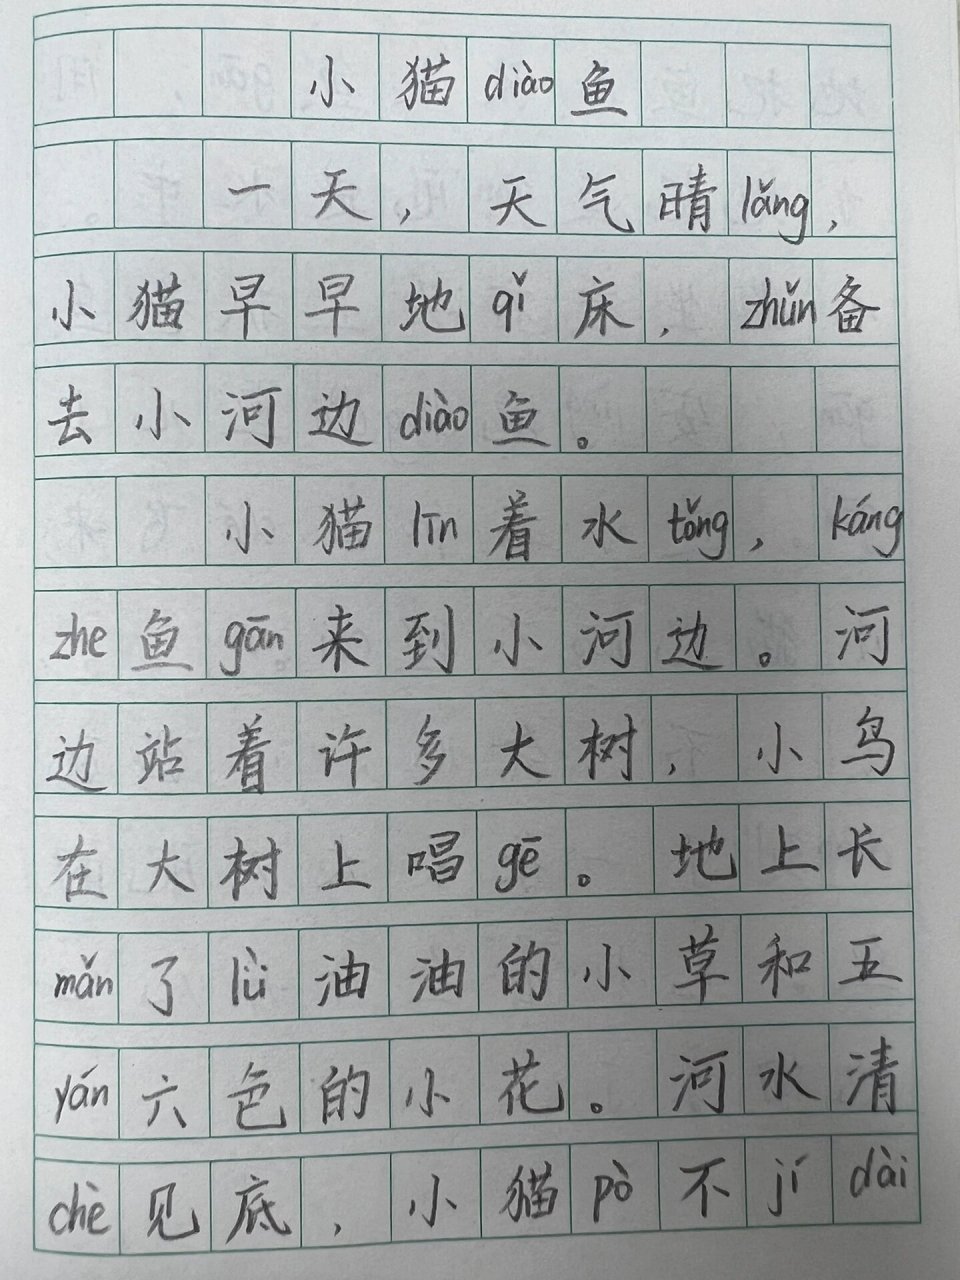 小猫diào鱼
一天，天气晴lǎng，
小猫早早地qǐ床，zhǔn备
去小河边diào鱼。
小猫līn着水tǒng，káng
zhe鱼gān来到小河边。河
边站着许多大树，小鸟
在大树上唱gē。地上长
mǎn了lǜ油油的小草和五
yán六色的小花。河水清
chè见底，小猫pò不jí dài